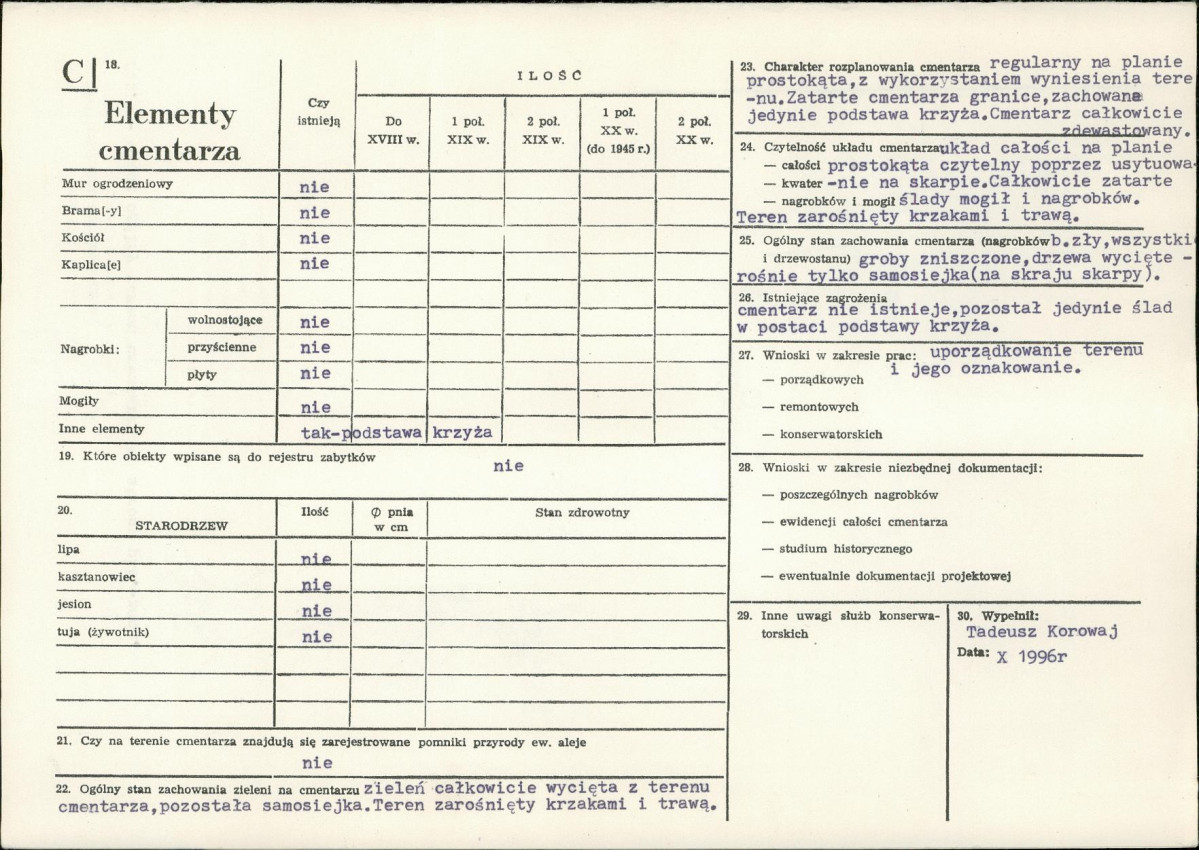 C 18.
Elementy
cmentarza
Czy
istnieją
ILOŚĆ
Do
XVIII w.
1 poł.
XIX w.
2 poł.
XIX w.
1 poł.
XX w.
(do 1945 r.)
2 poł.
XX w.
Mur ogrodzeniowy nie
Brama[-y] nie
Kościół nie
Kaplica[e] nie
Nagrobki:
wolnostojące nie
przyścienne nie
płyty nie
Mogiły nie
Inne elementy tak-podstawa krzyża
19. Które obiekty wpisane są do rejestru zabytków
nie
20.
STARODRZEW
Ilość
Ø pnia
w cm
Stan zdrowotny
lipa nie
kasztanowiec nie
jesion nie
tuja (żywotnik) nie
21. Czy na terenie cmentarza znajdują się zarejestrowane pomniki przyrody ew. aleje
nie
22. Ogólny stan zachowania zieleni na cmentarzu zieleń całkowicie wycięta z terenu
cmentarza,pozostała samosiejka.Teren zarośnięty krzakami i trawą.
23. Charakter rozplanowania cmentarza regularny na planie
prostokąta,z wykorzystaniem wyniesienia tere
-nu.Zatarte cmentarza granice,zachowana
jedynie podstawa krzyża.Cmentarz całkowicie
zdewastowany.
24. Czytelność układu cmentarza układ całości na planie
— całości prostokąta czytelny poprzez usytuowa-
— kwater -nie na skarpie.Całkowicie zatarte
— nagrobków i mogił ślady mogił i nagrobków.
Teren zarośnięty krzakami i trawą.
25. Ogólny stan zachowania cmentarza (nagrobków b.zły,wszystkie
i drzewostanu) groby zniszczone,drzewa wycięte -
rośnie tylko samosiejka(na skraju skarpy).
26. Istniejące zagrożenia
cmentarz nie istnieje,pozostał jedynie ślad
w postaci podstawy krzyża.
27. Wnioski w zakresie prac: uporządkowanie terenu
i jego oznakowanie.
— porządkowych
— remontowych
— konserwatorskich
28. Wnioski w zakresie niezbędnej dokumentacji:
— poszczególnych nagrobków
— ewidencji całości cmentarza
— studium historycznego
— ewentualnie dokumentacji projektowej
29. Inne uwagi służb konserwa-
torskich
30. Wypełnił:
Tadeusz Korowaj
Data: X 1996r